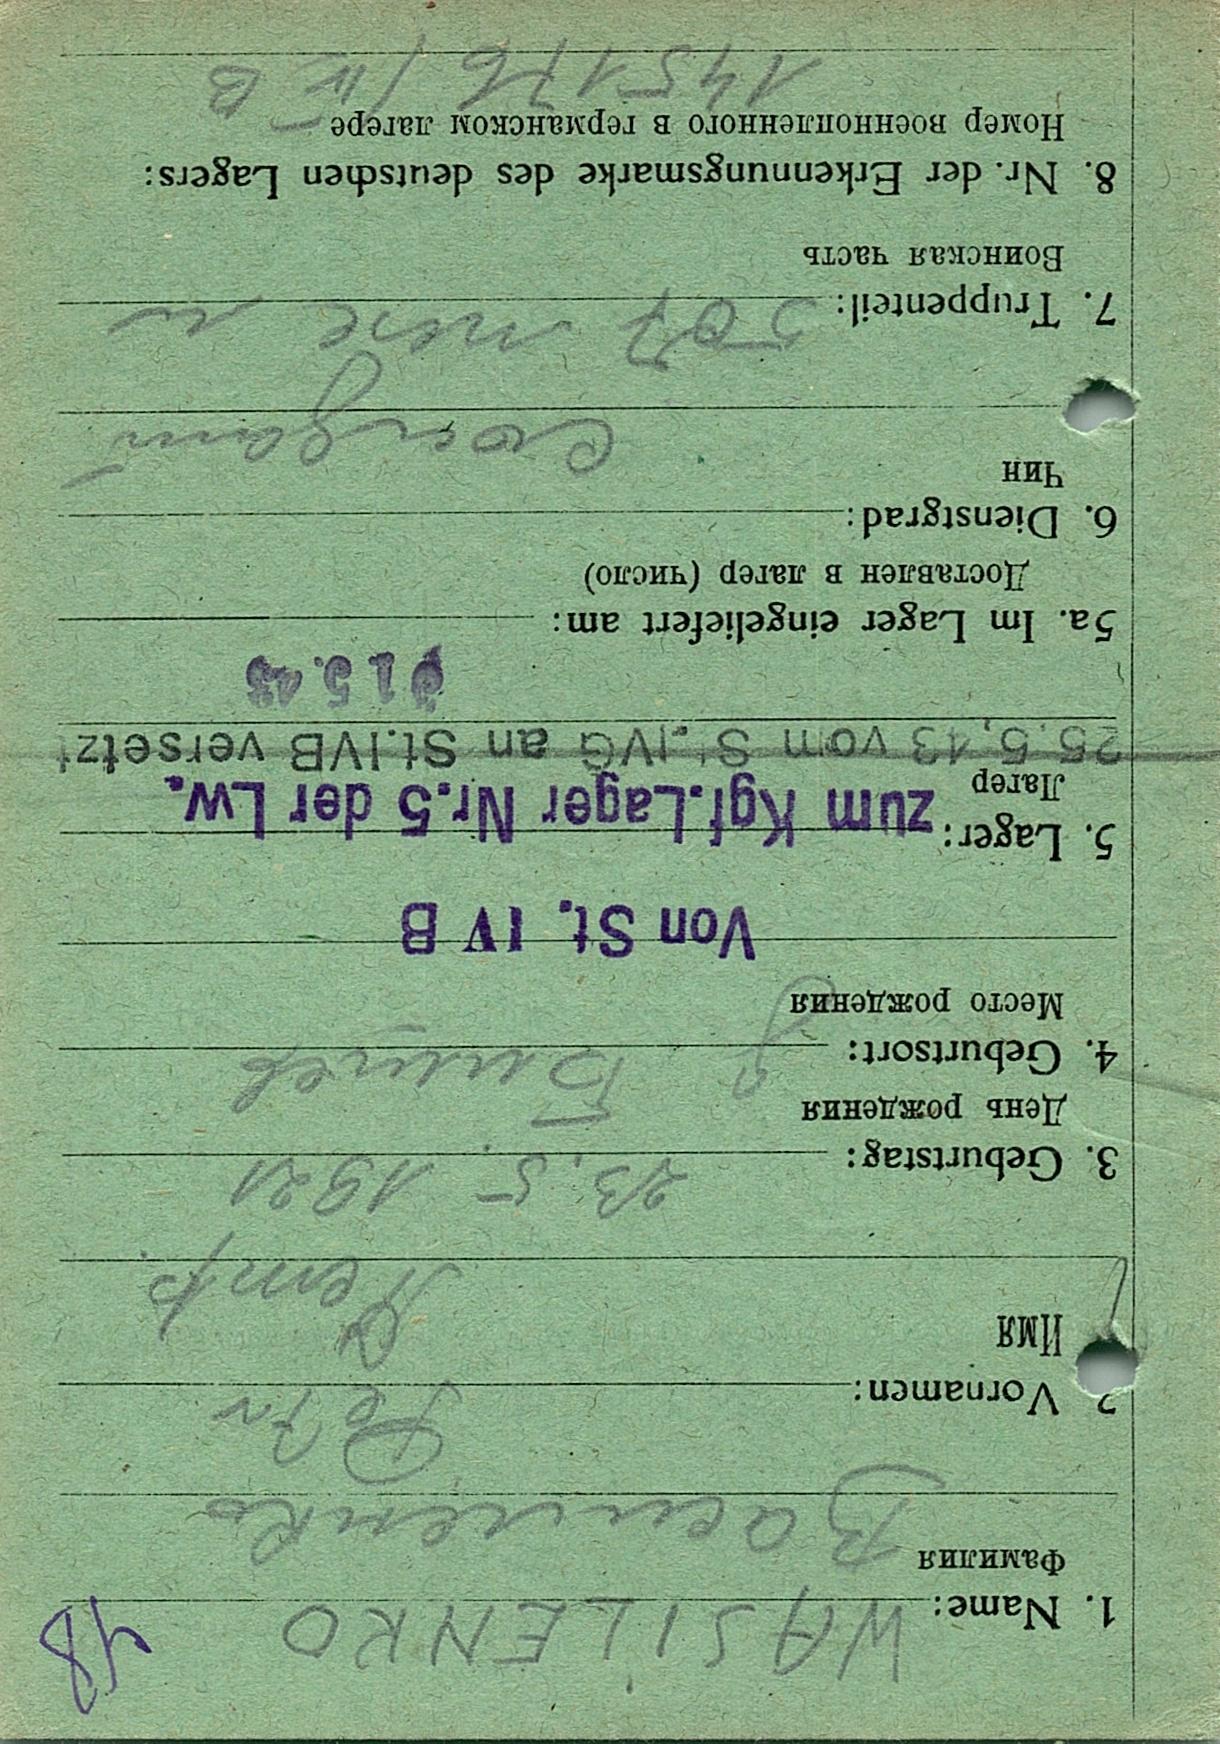 48
1. Name: WASILENKO
Фамилия Василенко
2. Vornamen: Petr
Имя Петр
3. Geburtstag: 23. 5. 1921
День рождения
4. Geburtsort:
Место рождения
Von St. IV B
5. Lager: zum Kgf.Lager Nr.5 der Lw.
Лагер
25.5.43 vom St.IVG an St.IVB versetzt
5a. Im Lager eingeliefert am:
Доставлен в лагер (число)
6. Dienstgrad:
Чин
7. Truppenteil: 507
Воинская часть
8. Nr. der Erkennungsmarke des deutschen Lagers:
Номер военнопленного в германском лагере
145176 / IV B